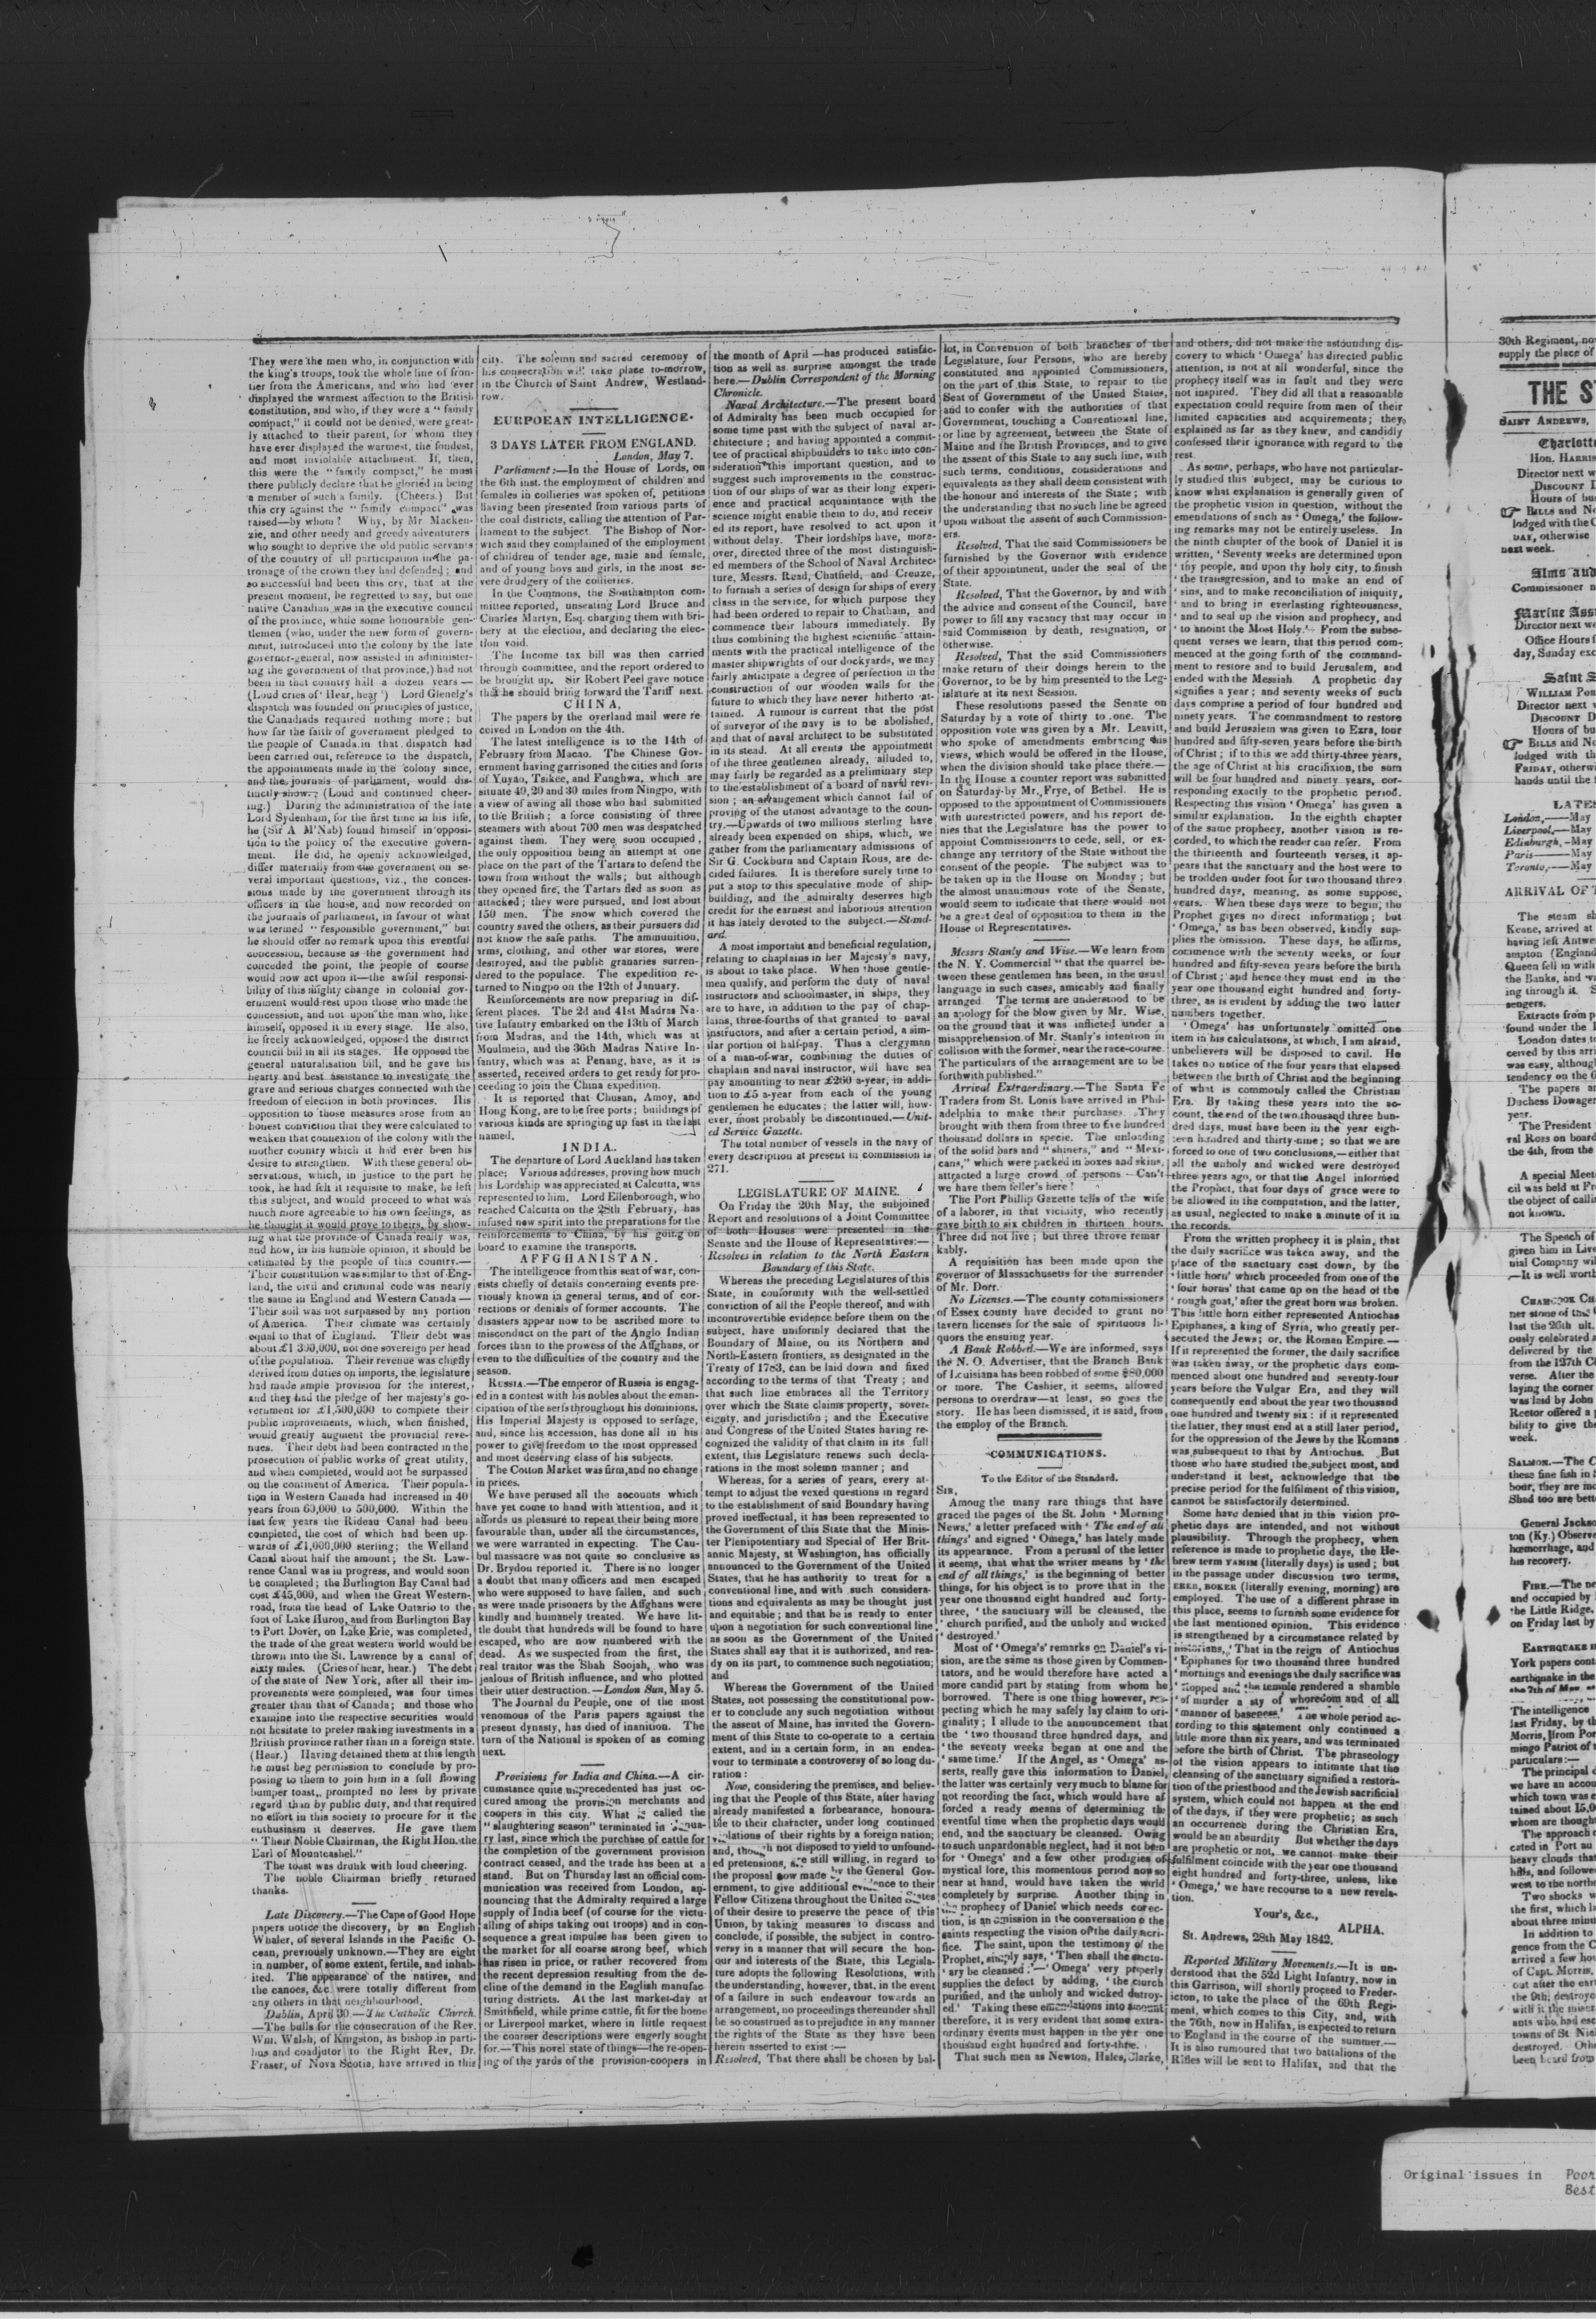 They were the men who, in conjunction with
the king's troops, took the whole line of fron-
tier from the Americans, and who had ever
displayed the warmest affection to the British
constitution, and who, if they were a "family
compact," it could not be denied, were great-
ly attached to their parent, for whom they
have ever displayed the warmest, the fondest,
and most inviolable attachment. If, then,
this were the "family compact," he must
there publicly declare that he gloried in being
a member of such a family. (Cheers.) But
this cry against the "family compact" was
raised—by whom? Why, by Mr Macken-
zie, and other needy and greedy adventurers
who sought to deprive the old public servants
of the country of all participation in the pa-
tronage of the crown they had defended; and
so successful had been this cry, that at the
present moment, he regretted to say, but one
native Canadian was in the executive council
of the province, while some honourable gen-
tlemen (who, under the new form of govern-
ment, introduced into the colony by the late
governor-general, now assisted in administer-
ing the government of that province,) had not
been in that country half a dozen years—
(Loud cries of 'Hear, hear') Lord Glenelg's
dispatch was founded on principles of justice,
the Canadiads required nothing more; but
how far the faith of government pledged to
the people of Canada in that dispatch had
been carried out, reference to the dispatch,
the appointments made in the colony since,
and the journals of parliament, would dis-
tinctly show. (Loud and continued cheer-
ing.) During the administration of the late
Lord Sydenham, for the first time in his life,
he (Sir A M'Nab) found himself in opposi-
tion to the policy of the executive govern-
ment. He did, he openly acknowledged,
differ materially from the government on se-
veral important questions, viz., the conces-
sions made by the government through its
officers in the house, and now recorded on
the journals of parliament, in favour of what
was termed "responsible government," but
he should offer no remark upon this eventful
concession, because as the government had
conceded the point, the people of course
would now act upon it—the awful responsi-
bility of this mighty change in colonial gov-
ernment would rest upon those who made the
concession, and not upon the man who, like
himself, opposed it in every stage. He also,
he freely acknowledged, opposed the district
council bill in all its stages. He opposed the
general naturalisation bill, and he gave his
hearty and best assistance to investigate the
grave and serious charges connected with the
freedom of election in both provinces. His
opposition to those measures arose from an
honest conviction that they were calculated to
weaken that connexion of the colony with the
mother country which it had ever been his
desire to strengthen. With these general ob-
servations, which, in justice to the part he
took, he had felt it requisite to make, he left
this subject, and would proceed to what was
much more agreeable to his own feelings, as
he thought it would prove to theirs, by show-
ing what the province of Canada really was,
and how, in his humble opinion, it should be
estimated by the people of this country.—
Their constitution was similar to that of Eng-
land, the civil and criminal code was nearly
the same in England and Western Canada—
Their soil was not surpassed by any portion
of America. Their climate was certainly
equal to that of England. Their debt was
about £1 300,000, not one sovereign per head
of the population. Their revenue was chiefly
derived from duties on imports, the legislature
had made ample provision for the interest,
and they had the pledge of her majesty's go-
vernment for £1,500,000 to complete their
public improvements, which, when finished,
would greatly augment the provincial reve-
nues. Their debt had been contracted in the
prosecution of public works of great utility,
and when completed, would not be surpassed
on the continent of America. Their popula-
tion in Western Canada had increased in 40
years from 60,000 to 500,000. Within the
last few years the Rideau Canal had been
completed, the cost of which had been up-
wards of £1,000,000 sterling; the Welland
Canal about half the amount; the St. Law-
rence Canal was in progress, and would soon
be completed; the Burlington Bay Canal had
cost £45,000, and when the Great Western-
road, from the head of Lake Ontario to the
foot of Lake Huron, and from Burlington Bay
to Port Dover, on Lake Erie, was completed,
the trade of the great western world would be
thrown into the St. Lawrence by a canal of
sixty miles. (Cries of hear, hear.) The debt
of the state of New York, after all their im-
provements were completed, was four times
greater than that of Canada; and those who
examine into the respective securities would
not hesitate to prefer making investments in a
British province rather than in a foreign state.
(Hear.) Having detained them at this length
he must beg permission to conclude by pro-
posing to them to join him in a full flowing
bumper toast, prompted no less by private
regard than by public duty, and that required
no effort in this society to procure for it the
enthusiasm it deserves. He gave them
"Their Noble Chairman, the Right Hon. the
Earl of Mountcashel."
The toast was drunk with loud cheering.
The noble Chairman briefly returned
thanks.
Late Discovery.—The Cape of Good Hope
papers notice the discovery, by an English
Whaler, of several Islands in the Pacific O-
cean, previously unknown.—They are eight
in number, of some extent, fertile, and inhab-
ited. The appearance of the natives, and
the canoes, &c. were totally different from
any others in that neighbourhood.
Dublin, April 30.—The Catholic Church.
—The bulls for the consecration of the Rev.
Wm. Walsh, of Kingston, as bishop in parti-
bus and coadjutor to the Right Rev. Dr.
Fraser, of Nova Scotia, have arrived in this
city. The solemn and sacred ceremony of
his consecration will take place to-morrow,
in the Church of Saint Andrew, Westland-
row.
EURPOEAN INTELLIGENCE.
3 DAYS LATER FROM ENGLAND.
London, May 7.
Parliament:—In the House of Lords, on
the 6th inst. the employment of children and
females in collieries was spoken of, petitions
having been presented from various parts of
the coal districts, calling the attention of Par-
liament to the subject. The Bishop of Nor-
wich said they complained of the employment
of children of tender age, male and female,
and of young boys and girls, in the most se-
vere drudgery of the collieries.
In the Commons, the Southampton com-
mittee reported, unseating Lord Bruce and
Charles Martyn, Esq. charging them with bri-
bery at the election, and declaring the elec-
tion void.
The Income tax bill was then carried
through committee, and the report ordered to
be brought up. Sir Robert Peel gave notice
that he should bring forward the Tariff next.
CHINA,
The papers by the overland mail were re
ceived in London on the 4th.
The latest intelligence is to the 14th of
February from Macao. The Chinese Gov-
ernment having garrisoned the cities and forts
of Yuyao, Tsikee, and Funghwa, which are
situate 40, 20 and 30 miles from Ningpo, with
a view of awing all those who had submitted
to the British; a force consisting of three
steamers with about 700 men was despatched
against them. They were soon occupied,
the only opposition being an attempt at one
place on the part of the Tartars to defend the
town from without the walls; but although
they opened fire, the Tartars fled as soon as
attacked; they were pursued, and lost about
150 men. The snow which covered the
country saved the others, as their pursuers did
not know the safe paths. The ammunition,
arms, clothing, and other war stores, were
destroyed, and the public granaries surren-
dered to the populace. The expedition re-
turned to Ningpo on the 12th of January.
Reinforcements are now preparing in dif-
ferent places. The 2d and 41st Madras Na-
tive Infantry embarked on the 13th of March
from Madras, and the 14th, which was at
Moulmein, and the 36th Madras Native In-
fantry, which was at Penang, have, as it is
asserted, received orders to get ready for pro-
ceeding to join the China expedition.
It is reported that Chusan, Amoy, and
Hong Kong, are to be free ports; buildings of
various kinds are springing up fast in the last
named.
INDIA.
The departure of Lord Auckland has taken
place; Various addresses, proving how much
his Lordship was appreciated at Calcutta, was
represented to him. Lord Ellenborough, who
reached Calcutta on the 28th February, has
infused new spirit into the preparations for the
reinforcements to China, by his going on
board to examine the transports.
AFFGHANISTAN.
The intelligence from this seat of war, con-
sists chiefly of details concerning events pre-
viously known in general terms, and of cor-
rections or denials of former accounts. The
disasters appear now to be ascribed more to
misconduct on the part of the Anglo Indian
forces than to the prowess of the Affghans, or
even to the difficulties of the country and the
season.
RUSSIA.—The emperor of Russia is engag-
ed in a contest with his nobles about the eman-
cipation of the serfs throughout his dominions.
His Imperial Majesty is opposed to serfage,
and, since his accession, has done all in his
power to give freedom to the most oppressed
and most deserving class of his subjects.
The Cotton Market was firm, and no change
in prices.
We have perused all the accounts which
have yet come to hand with attention, and it
affords us pleasure to repeat their being more
favourable than, under all the circumstances,
we were warranted in expecting. The Cau-
bul massacre was not quite so conclusive as
Dr. Brydou reported it. There is no longer
a doubt that many officers and men escaped
who were supposed to have fallen, and such
as were made prisoners by the Affghans were
kindly and humanely treated. We have lit-
tle doubt that hundreds will be found to have
escaped, who are now numbered with the
dead. As we suspected from the first, the
real traitor was the Shah Soojah, who was
jealous of British influence, and who plotted
their utter destruction.—London Sun, May 5.
The Journal du Peuple, one of the most
venomous of the Paris papers against the
present dynasty, has died of inanition. The
turn of the National is spoken of as coming
next.
Provisions for India and China.—A cir-
cumstance quite unprecedented has just oc-
cured among the provision merchants and
coopers in this city. What is called the
"slaughtering season" terminated in Janua-
ry last, since which the purchase of cattle for
the completion of the government provision
contract ceased, and the trade has been at a
stand. But on Thursday last an official com-
munication was received from London, an-
nouncing that the Admiralty required a large
supply of India beef (of course for the victu-
alling of ships taking out troops) and in con-
sequence a great impulse has been given to
the market for all coarse strong beef, which
has risen in price, or rather recovered from
the recent depression resulting from the de-
cline of the demand in the English manufac-
turing districts. At the last market-day at
Smithfield, while prime cattle, fit for the home
or Liverpool market, where in little request
the coarser descriptions were eagerly sought
for.—This novel state of things—the re-open-
ing of the yards of the provision-coopers in
the month of April—has produced satisfac-
tion as well as surprise amongst the trade
here.—Dublin Correspondent of the Morning
Chronicle.
Naval Architecture.—The present board
of Admiralty has been much occupied for
some time past with the subject of naval ar-
chitecture; and having appointed a commit-
tee of practical shipbuilders to take into con-
sideration this important question, and to
suggest such improvements in the construc-
tion of our ships of war as their long experi-
ence and practical acquaintance with the
science might enable them to do, and receiv
ed its report, have resolved to act upon it
without delay. Their lordships have, more-
over, directed three of the most distinguish-
ed members of the School of Naval Architec-
ture, Messrs. Read, Chatfield, and Creuze,
to furnish a series of design for ships of every
class in the service, for which purpose they
had been ordered to repair to Chatham, and
commence their labours immediately. By
thus combining the highest scientific attain-
ments with the practical intelligence of the
master shipwrights of our dockyards, we may
fairly anticipate a degree of perfection in the
construction of our wooden walls for the
future to which they have never hitherto at-
tained. A rumour is current that the post
of surveyor of the navy is to be abolished,
and that of naval architect to be substituted
in its stead. At all events the appointment
of the three gentlemen already, alluded to,
may fairly be regarded as a preliminary step
to the establishment of a board of naval revi-
sion; an arrangement which cannot fail of
proving of the utmost advantage to the coun-
try.—Upwards of two millions sterling have
already been expended on ships, which, we
gather from the parliamentary admissions of
Sir G. Cockburn and Captain Rous, are de-
cided failures. It is therefore surely time to
put a stop to this speculative mode of ship-
building, and the admiralty deserves high
credit for the earnest and laborious attention
it has lately devoted to the subject.—Stand-
ard.
A most important and beneficial regulation,
relating to chaplains in her Majesty's navy,
is about to take place. When those gentle-
men qualify, and perform the duty of naval
instructors and schoolmaster, in ships, they
are to have, in addition to the pay of chap-
lains, three-fourths of that granted to naval
instructors, and after a certain period, a sim-
ilar portion of half-pay. Thus a clergyman
of a man-of-war, combining the duties of
chaplain and naval instructor, will have sea
pay amounting to near £260 a-year, in addi-
tion to £5 a-year from each of the young
gentlemen he educates; the latter will, how-
ever, most probably be discontinued.—Unit-
ed Service Gazette.
The total number of vessels in the navy of
every description at present in commission is
271.
LEGISLATURE OF MAINE.
On Friday the 20th May, the subjoined
Report and resolutions of a Joint Committee
of both Houses were presented in the
Senate and the House of Representatives:—
Resolves in relation to the North Eastern
Boundary of this State.
Whereas the preceding Legislatures of this
State, in conformity with the well-settled
conviction of all the People thereof, and with
incontrovertible evidence before them on the
subject, have uniformly declared that the
Boundary of Maine, on its Northern and
North-Eastern frontiers, as designated in the
Treaty of 1783, can be laid down and fixed
according to the terms of that Treaty; and
that such line embraces all the Territory
over which the State claims property, sover-
eignty, and jurisdiction; and the Executive
and Congress of the United States having re-
cognized the validity of that claim in its full
extent, this Legislature renews such decla-
rations in the most solemn manner; and
Whereas, for a series of years, every at-
tempt to adjust the vexed questions in regard
to the establishment of said Boundary having
proved ineffectual, it has been represented to
the Government of this State that the Minis-
ter Plenipotentiary and Special of Her Brit-
annic Majesty, at Washington, has officially
announced to the Government of the United
States, that he has authority to treat for a
conventional line, and with such considera-
tions and equivalents as may be thought just
and equitable; and that he is ready to enter
upon a negotiation for such conventional line
as soon as the Government of the United
States shall say that it is authorized, and rea-
dy on its part, to commence such negotiation;
and
Whereas the Government of the United
States, not possessing the constitutional pow-
er to conclude any such negotiation without
the assent of Maine, has invited the Govern-
ment of this State to co-operate to a certain
extent, and in a certain form, in an endea-
vour to terminate a controversy of so long du-
ration:
Now, considering the premises, and believ-
ing that the People of this State, after having
already manifested a forbearance, honoura-
ble to their character, under long continued
violations of their rights by a foreign nation;
and, though not disposed to yield to unfound-
ed pretensions, are still willing, in regard to
the proposal now made by the General Gov-
ernment, to give additional evidence to their
Fellow Citizens throughout the United States
of their desire to preserve the peace of this
Union, by taking measures to discuss and
conclude, if possible, the subject in contro-
versy in a manner that will secure the hon-
our and interests of the State, this Legisla-
ture adopts the following Resolutions, with
the understanding, however, that, in the event
of a failure in such endeavour towards an
arrangement, no proceedings thereunder shall
be so construed as to prejudice in any manner
the rights of the State as they have been
herein asserted to exist:—
Resolved, That there shall be chosen by bal-
lot, in Convention of both branches of the
Legislature, four Persons, who are hereby
constituted and appointed Commissioners,
on the part of this State, to repair to the
Seat of Government of the United States,
and to confer with the authorities of that
Government, touching a Conventional line,
or line by agreement, between the State of
Maine and the British Provinces, and to give
the assent of this State to any such line, with
such terms, conditions, considerations and
equivalents as they shall deem consistent with
the honour and interests of the State; with
the understanding that no such line be agreed
upon without the assent of such Commission-
ers.
Resolved, That the said Commissioners be
furnished by the Governor with evidence
of their appointment, under the seal of the
State.
Resolved, That the Governor, by and with
the advice and consent of the Council, have
power to fill any vacancy that may occur in
said Commission by death, resignation, or
otherwise.
Resolved, That the said Commissioners
make return of their doings herein to the
Governor, to be by him presented to the Leg-
islature at its next Session.
These resolutions passed the Senate on
Saturday by a vote of thirty to one. The
opposition vote was given by a Mr. Leavitt,
who spoke of amendments embracing his
views, which would be offered in the House,
when the division should take place there.—
In the House a counter report was submitted
on Saturday by Mr. Frye, of Bethel. He is
opposed to the appointment of Commissioners
with unrestricted powers, and his report de-
nies that the Legislature has the power to
appoint Commissioners to cede, sell, or ex-
change any territory of the State without the
consent of the people. The subject was to
be taken up in the House on Monday; but
the almost unanimous vote of the Senate,
would seem to indicate that there would not
be a great deal of opposition to them in the
House of Representatives.
Messrs Stanly and Wise.—We learn from
the N. Y. Commercial "that the quarrel be-
tween these gentlemen has been, in the usual
language in such cases, amicably and finally
arranged. The terms are understood to be
an apology for the blow given by Mr. Wise,
on the ground that it was inflicted under a
misapprehension of Mr. Stanly's intention in
collision with the former, near the race-course
The particulars of the arrangement are to be
forthwith published."
Arrival Extraordinary.—The Santa Fe
Traders from St. Louis have arrived in Phil-
adelphia to make their purchases. They
brought with them from three to five hundred
thousand dollars in specie. The unloading
of the solid bars and "shiners," and "Mexi-
cans," which were packed in boxes and skins,
attracted a large crowd of persons. Can't
we have them feller's here?
The Port Phillip Gazette tells of the wife
of a laborer, in that vicinity, who recently
gave birth to six children in thirteen hours.
Three did not live; but three throve remar
kably.
A requisition has been made upon the
governor of Massachusetts for the surrender
of Mr. Dorr.
No Licenses.—The county commissioners
of Essex county have decided to grant no
tavern licenses for the sale of spirituous li-
quors the ensuing year.
A Bank Robbed.—We are informed, says
the N. O. Advertiser, that the Branch Bank
of Louisiana has been robbed of some $80,000
or more. The Cashier, it seems, allowed
persons to overdraw—at least, so goes the
story. He has been dismissed, it is said, from
the employ of the Branch.
COMMUNICATIONS.
To the Editor of the Standard.
SIR,
Among the many rare things that have
graced the pages of the St. John 'Morning
News,' a letter prefaced with 'The end of all
things' and signed 'Omega,' has lately made
its appearance. From a perusal of the letter
it seems, that what the writer means by 'the
end of all things,' is the beginning of better
things, for his object is to prove that in the
year one thousand eight hundred and forty-
three, 'the sanctuary will be cleansed, the
'church purified, and the unholy and wicked
'destroyed.'
Most of 'Omega's' remarks on Daniel's vi-
sion, are the same as those given by Commen-
tators, and he would therefore have acted a
more candid part by stating from whom he
borrowed. There is one thing however, res-
pecting which he may safely lay claim to ori-
ginality; I allude to the announcement that
the 'two thousand three hundred days, and
'the seventy weeks began at one and the
'same time.' If the Angel, as 'Omega' as-
serts, really gave this information to Daniel,
the latter was certainly very much to blame for
not recording the fact, which would have af
forded a ready means of determining the
eventful time when the prophetic days would
end, and the sanctuary be cleansed. Owing
to such unpardonable neglect, had it not been
for 'Omega' and a few other prodigies of
mystical lore, this momentous period now so
near at hand, would have taken the world
completely by surprise. Another thing in
the prophecy of Daniel which needs corec-
tion, is an omission in the conversation o the
saints respecting the vision of the daily sacri-
fice. The saint, upon the testimony of the
Prophet, simply says, 'Then shall the sanctu-
'ary be cleansed:'—'Omega' very properly
supplies the defect by adding, 'the church
purified, and the unholy and wicked destroy-
ed.' Taking these emendations into account
therefore, it is very evident that some extra-
ordinary events must happen in the year one
thousand eight hundred and forty-three.
That such men as Newton, Hales, Clarke,
and others, did not make the astounding dis-
covery to which 'Omega' has directed public
attention, is not at all wonderful, since the
prophecy itself was in fault and they were
not inspired. They did all that a reasonable
expectation could require from men of their
limited capacities and acquirements; they
explained as far as they knew, and candidly
confessed their ignorance with regard to the
rest
As some, perhaps, who have not particular-
ly studied this subject, may be curious to
know what explanation is generally given of
the prophetic vision in question, without the
emendations of such as 'Omega,' the follow-
ing remarks may not be entirely useless. In
the ninth chapter of the book of Daniel it is
written, 'Seventy weeks are determined upon
'thy people, and upon thy holy city, to finish
'the transgression, and to make an end of
'sins, and to make reconciliation of iniquity,
'and to bring in everlasting righteousness,
'and to seal up the vision and prophecy, and
'to anoint the Most Holy.' From the subse-
quent verses we learn, that this period com-
menced at the going forth of the command-
ment to restore and to build Jerusalem, and
ended with the Messiah. A prophetic day
signifies a year; and seventy weeks of such
days comprise a period of four hundred and
ninety years. The commandment to restore
and build Jerusalem was given to Ezra, four
hundred and fifty-seven years before the birth
of Christ; if to this we add thirty-three years,
the age of Christ at his crucifixion, the sum
will be four hundred and ninety years, cor-
responding exactly to the prophetic period.
Respecting this vision 'Omega' has given a
similar explanation. In the eighth chapter
of the same prophecy, another vision is re-
corded, to which the reader can refer. From
the thirteenth and fourteenth verses, it ap-
pears that the sanctuary and the host were to
be trodden under foot for two thousand three
hundred days, meaning, as some suppose,
years. When these days were to begin, the
Prophet gives no direct information; but
'Omega,' as has been observed, kindly sup-
plies the omission. These days, he affirms,
commence with the seventy weeks, or four
hundred and fifty-seven years before the birth
of Christ; and hence they must end in the
year one thousand eight hundred and forty-
three, as is evident by adding the two latter
numbers together.
'Omega' has unfortunately omitted one
item in his calculations, at which, I am afraid,
unbelievers will be disposed to cavil. He
takes no notice of the four years that elapsed
between the birth of Christ and the beginning
of what is commonly called the Christian
Era. By taking these years into the ac-
count, the end of the two thousand three hun-
dred days, must have been in the year eigh-
teen hundred and thirty-nine; so that we are
forced to one of two conclusions,—either that
all the unholy and wicked were destroyed
three years ago, or that the Angel informed
the Prophet, that four days of grace were to
be allowed in the computation, and the latter,
as usual, neglected to make a minute of it in
the records.
From the written prophecy it is plain, that
the daily sacrifice was taken away, and the
place of the sanctuary cast down, by the
'little horn' which proceeded from one of the
'four horns' that came up on the head of the
'rough goat,' after the great horn was broken.
This little horn either represented Antiochus
Epiphanes, a king of Syria, who greatly per-
secuted the Jews; or, the Roman Empire.—
If it represented the former, the daily sacrifice
was taken away, or the prophetic days com-
menced about one hundred and seventy-four
years before the Vulgar Era, and they will
consequently end about the year two thousand
one hundred and twenty six: if it represented
the latter, they must end at a still later period,
for the oppression of the Jews by the Romans
was subsequent to that by Antiochus. But
those who have studied the subject most, and
understand it best, acknowledge that the
precise period for the fulfilment of this vision,
cannot be satisfactorily determined.
Some have denied that in this vision pro-
phetic days are intended, and not without
plausibility. Through the prophecy, when
reference is made to prophetic days, the He-
brew term YAMIM (literally days) is used; but
in the passage under discussion two terms,
EREB, BOKER (literally evening, morning) are
employed. The use of a different phrase in
this place, seems to furnish some evidence for
the last mentioned opinion. This evidence
is strengthened by a circumstance related by
historians, 'That in the reign of Antiochus
'Epiphanes for two thousand three hundred
'mornings and evenings the daily sacrifice was
'stopped and the temple rendered a shamble
'of murder a sty of whoredom and of all
'manner of baseness.' The whole period ac-
cording to this statement only continued a
little more than six years, and was terminated
before the birth of Christ. The phraseology
of the vision appears to intimate that the
cleansing of the sanctuary signified a restora-
tion of the priesthood and the Jewish sacrificial
system, which could not happen at the end
of the days, if they were prophetic; as such
an occurrence during the Christian Era,
would be an absurdity But whether the days
are prophetic or not, we cannot make their
fulfilment coincide with the year one thousand
eight hundred and forty-three, unless, like
'Omega,' we have recourse to a new revela-
tion.
Your's, &c.,
ALPHA.
St. Andrews, 28th May 1842.
Reported Military Movements.—It is un-
derstood that the 52d Light Infantry, now in
this Garrison, will shortly proceed to Freder-
icton, to take the place of the 69th Regi-
ment, which comes to this City, and, with
the 76th, now in Halifax, is expected to return
to England in the course of the summer.—
It is also rumoured that two battalions of the
Rifles will be sent to Halifax, and that the
30th Regiment, no
supply the place of
THE S
SAINT ANDREWS,
Charlotte
Hon. HARRIS
Director next w
DISCOUNT D
Hours of bu
BILLS and No
lodged with the C
DAY, otherwise
next week.
Alms and
Commissioner n
Marine Ass
Director next we
Office Hours f
day, Sunday exc
Saint S
WILLIAM POR
Director next w
DISCOUNT D
Hours of bu
BILLS and No
lodged with th
FRIDAY, otherwi
hands until the
LATES
London,—May
Liverpool,—May
Edinburgh,—May
Paris—May
Toronto,—May
ARRIVAL OF T
The steam sh
Keane, arrived at
having left Antwe
ampton (England
Queen fell in with
the Banks, and w
ing through it. S
sengers.
Extracts from p
found under the
London dates to
ceived by this arri
was easy, althoug
tendency on the 6
The papers an
Duchess Dowager
year.
The President
ral Ross on board
the 4th, from the
A special Meet
cil was held at Fr
the object of calli
not known.
The Speech of
given him in Live
nial Company wi
—It is well worth
CHAMCOOK CH
ner stone of the
last the 26th ult.
ously celebrated a
delivered by the
from the 127th
verse. After the
laying the corner
was laid by John
Rector offered a
bility to give the
week.
SALMON.—The C
these fine fish in
bour, they are inc
Shad too are bett
General Jackso
ton (Ky.) Observe
hœmorrhage, and
his recovery.
FIRE.—The ne
and occupied by
the Little Ridge,
on Friday last by
EARTHQUAKE
York papers cont
earthquake in the
the 7th of May
The intelligence
last Friday, by th
Morris, from Por
mingo Patriot of
particulars:—
The principal
we have an accou
which town was
tained about 15,0
whom are though
The approach
cated in Port au
heavy clouds that
hills, and followe
west to the northe
Two shocks w
the first, which l
about three minu
In addition to
gence from the C
arrived a few hou
of Capt. Morris,
out after the eart
the 9th, destroye
with it the miser
ants who had esc
towns of St Nic
destroyed. Oth
been heard from
Original issues in Poor
Best